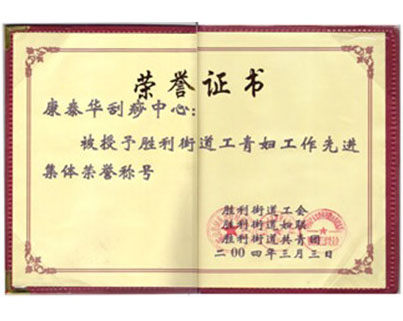 荣誉证书
康泰华刮痧中心：
被授予胜利街道工青妇工作先进
集体荣誉称号
胜利街道工会
胜利街道妇联
胜利街道共青团
二00四年三月三日